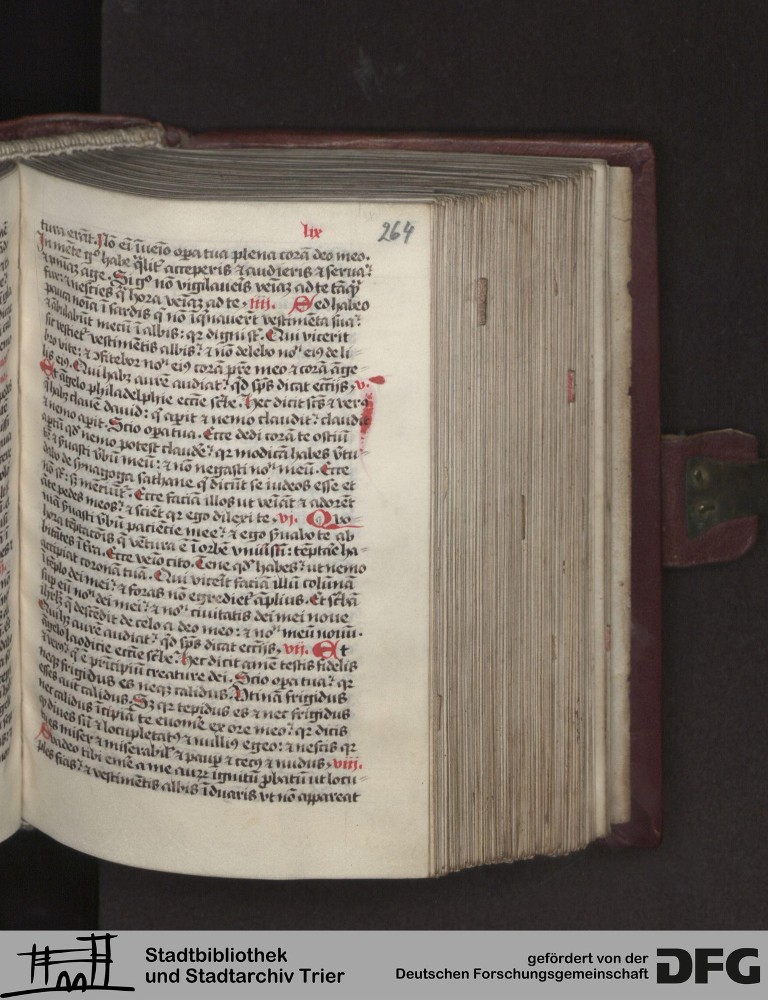 lix
264
tura erāt. Nō ei̅ īueīo opa tua plena corā deo meo.
In mēte gͦ habe qlit̉ acceperis ⁊ audieris ⁊ serua:
⁊ pniaꝫ age. Si gͦ nō vigilaueis veiaꝫ ad te tāqͣ
fur: ⁊ nesties q̄ hora veiaꝫ ad te. iiij. Sed habeo
pauca noīa ī sardis q̄ nō īqnauer̄t vestimēta sua:
⁊ ābulabūt mecū ī albis: qr digni sƭ. Qui vicerit
sit vestiet̉ vestimētis albis: ⁊ nō delebo noͫ eiꝰ de li-
bro vite: ⁊ ↄfitebor noͫ eiꝰ corā pr̄e meo ⁊ corā āge-
lis eiꝰ. Qui habꝫ aurē audiat: qd sp̄s dicat eccīijs, v.
Et āgelo philadelphie eccīe sc̄be. Hec dicit sc̄s ⁊ verꝰ
q̄ habꝫ clauē dauid: q̄ apit ⁊ nemo claudit: claudit
⁊ nemo apit. Scio opa tua. Ecce dedi corā te ostiū
aptū qd̄ nemo potest claude: qr modicā habes v̄tu-
tē ⁊ s̄uasti v̄bū meū: ⁊ nō negasti noͫ meū. Ecce
dabo de synagoga sathane q̄ dicūt se iudeos esse et
nō sƭ: sꝫ mētiūt̉. Ecce faciā illos ut veiāt ⁊ adorēt
āte pedes meos: ⁊ sciēt qr ego dilexi te, vj. Quo-
niā s̄uasti v̄bū paciētie mee: ⁊ ego s̄uabo te ab
hora tēptacōis q̄ vētura ē ī orbē vniuſſū: tēptāe ha-
bitātes ī t̄ra. Ecce veīo cito. Tene qd̄ habes: ut nemo
accipiat coronā tuā. Qui vicēit faciā illū colūnā
ī tēplo dei mei: ⁊ foras nō egrediet̉ āplius. Et sc̄bā
sup eū noͫ dei mei: ⁊ noͫ ciuitatis dei mei noue
ihrl̄m q̄ descēdit de celo a deo meo: ⁊ noͫ meū nouū.
Qui hꝫ aurē audiat: qd sp̄s dicat eccīijs, vij. Et
āgelo laodicie eccīe sc̄be: Hec dicit amē testis fidelis
⁊ verꝰ: q̄ ē pricipiū creature dei. Scio opa tua: qr
neqꝫ frigidus es neqꝫ calidus. Vtinā frigidus
esses aut calidus. Sꝫ qr tepidus es ⁊ nec frigidus
nec calidus īcipiā te euomē ex ore meo: qr dicis
q̄ diues sū ⁊ locupletatꝰ ⁊ nulliꝰ egeo: ⁊ nescis qr
tu es miser ⁊ miserabil̉ ⁊ paup̄ ⁊ cecꝰ ⁊ nudus, viij.
Suadeo tibi emē a me aurū ignitū pbatū ut locu-
ples fias: ⁊ vestimētis albis īduaris vt nō appareat
Stadtbibliothek
und Stadtarchiv Trier
gefördert von der
Deutschen Forschungsgemeinschaft
DFG